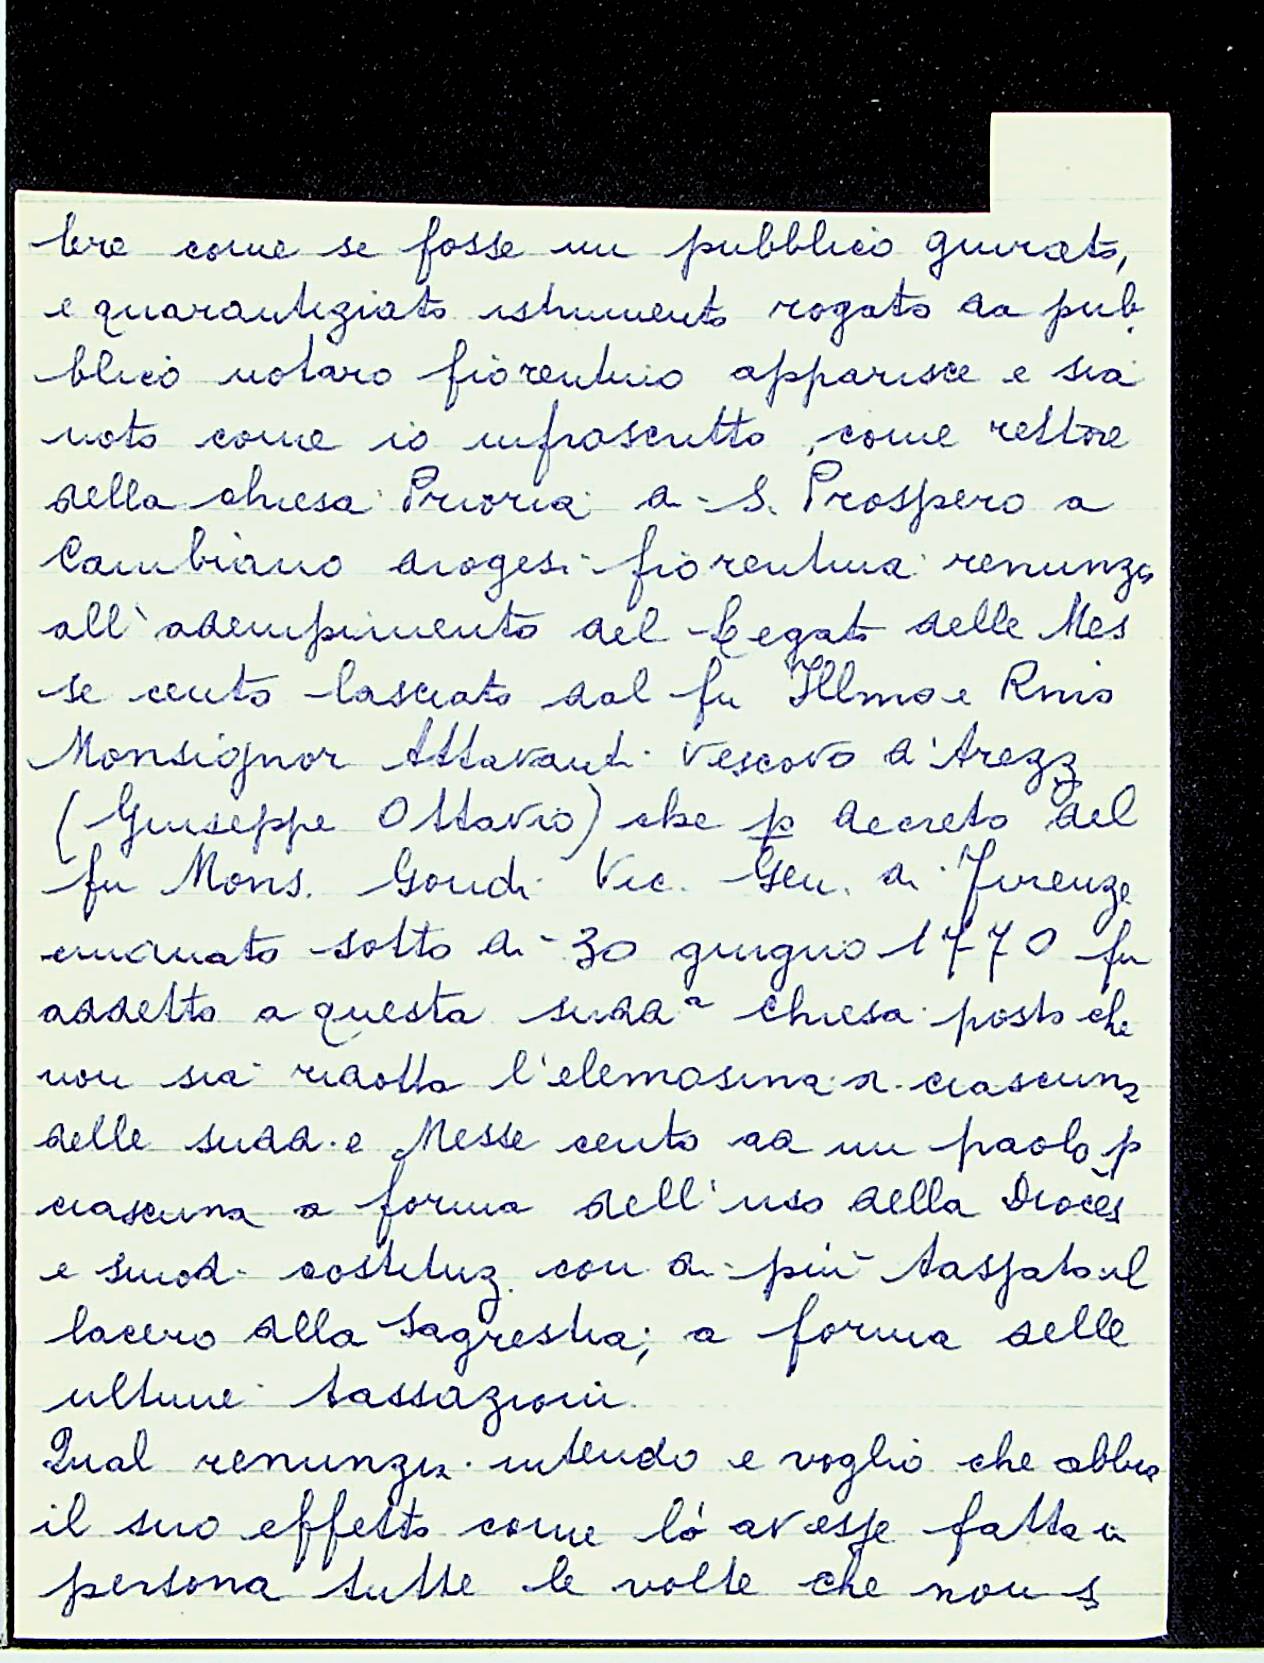 lere come se fosse un pubblico giurato,
e quarantigiato istrumento rogato da pub
blico notaro fiorentino apparisce e sia
noto come io infrascritto, come rettore
della chiesa Prioria di S. Prospero a
Cambiano diogesi fiorentina renunzio
all'adempimento del Legato delle Mes
se cento lasciato dal fu Illmo e Rmo
Monsignor Attavanti Vescovo d'Arezz
(Giuseppe Ottavio) che p decreto del
fu Mons. Gondi Vic. Gen. di Firenze
emanato sotto di 30 giugno 1770 fu
addetto a questa sudda chiesa posto che
non sia ridotta l'elemosina di ciascuna
delle sudd.e Messe cento ad un paolo p
ciascuna a forma dell'uso della Dioces
e sinod. costituz. con di più
lacero alla Sagrestia; a forma delle
ultime tassazioni.
Qual renunzia intendo e voglio che abbia
il suo effetto come lo avesse fatta in
persona tutte le volte che non s